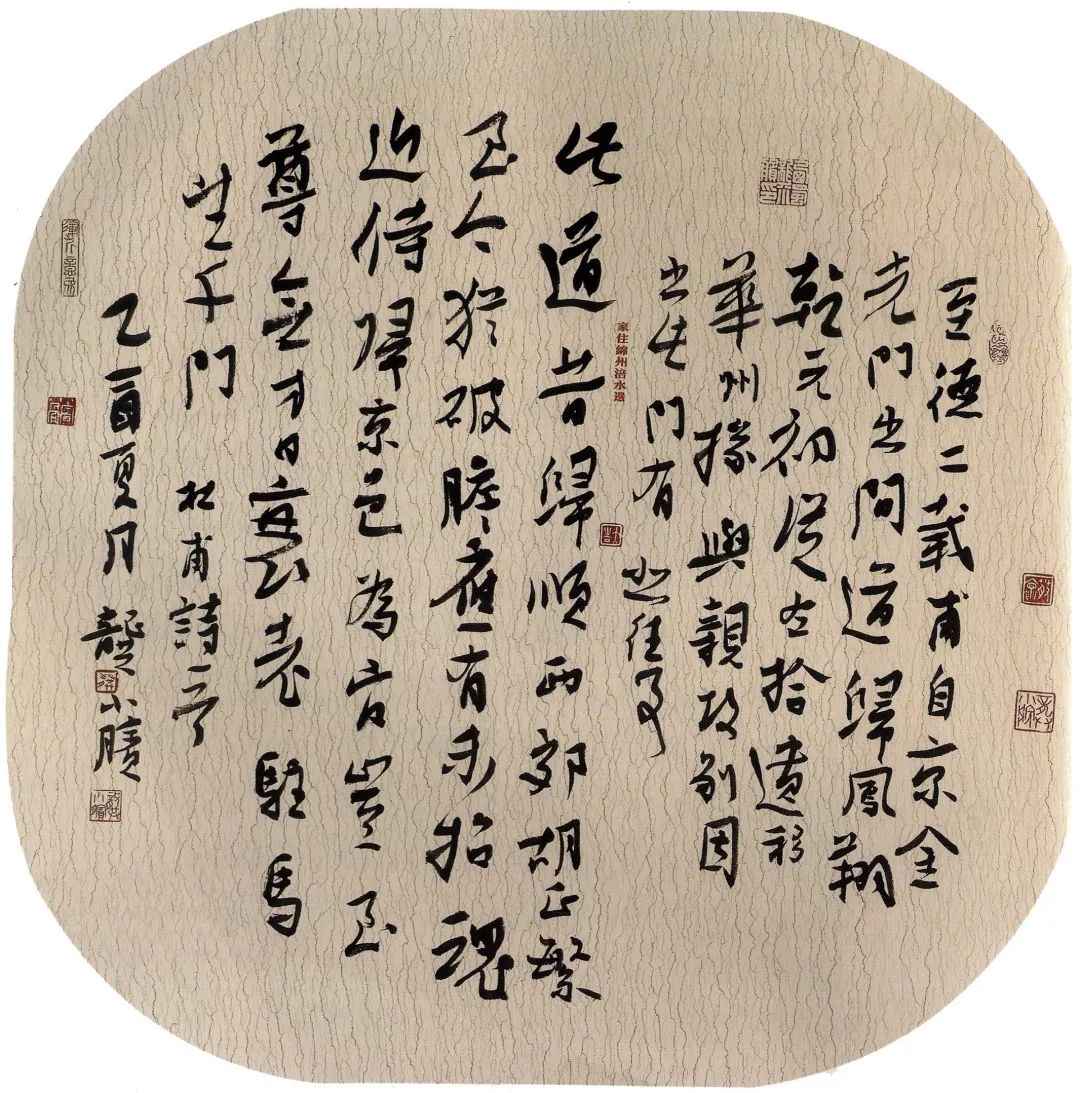 至德二載甫自京金
光門出間道歸鳳翔
乾元初從左拾遺移
華州掾與親故別因
出此門有悲往事
家住綿州涪水邊
此道昔歸順西郊胡正繁
至今猶破膽應有未招魂
近侍歸京邑為官豈至
尊無才日衰老駐馬
望千門 杜甫詩一首
乙酉夏月 龔小